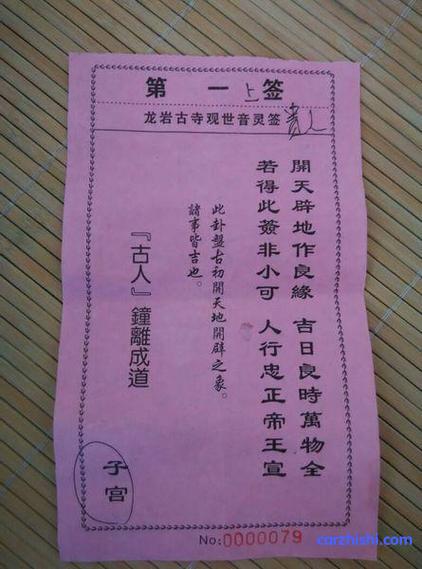 第 一 上 签
龙岩古寺观世音灵签
贵人
開天辟地作良緣 吉日良時萬物全
若得此簽非小可 人行忠正帝王宣
此卦盤古初開天地開辟之象。
諸事皆吉也。
『古人』鐘離成道
子宫
No:0000079
carzhishi.com